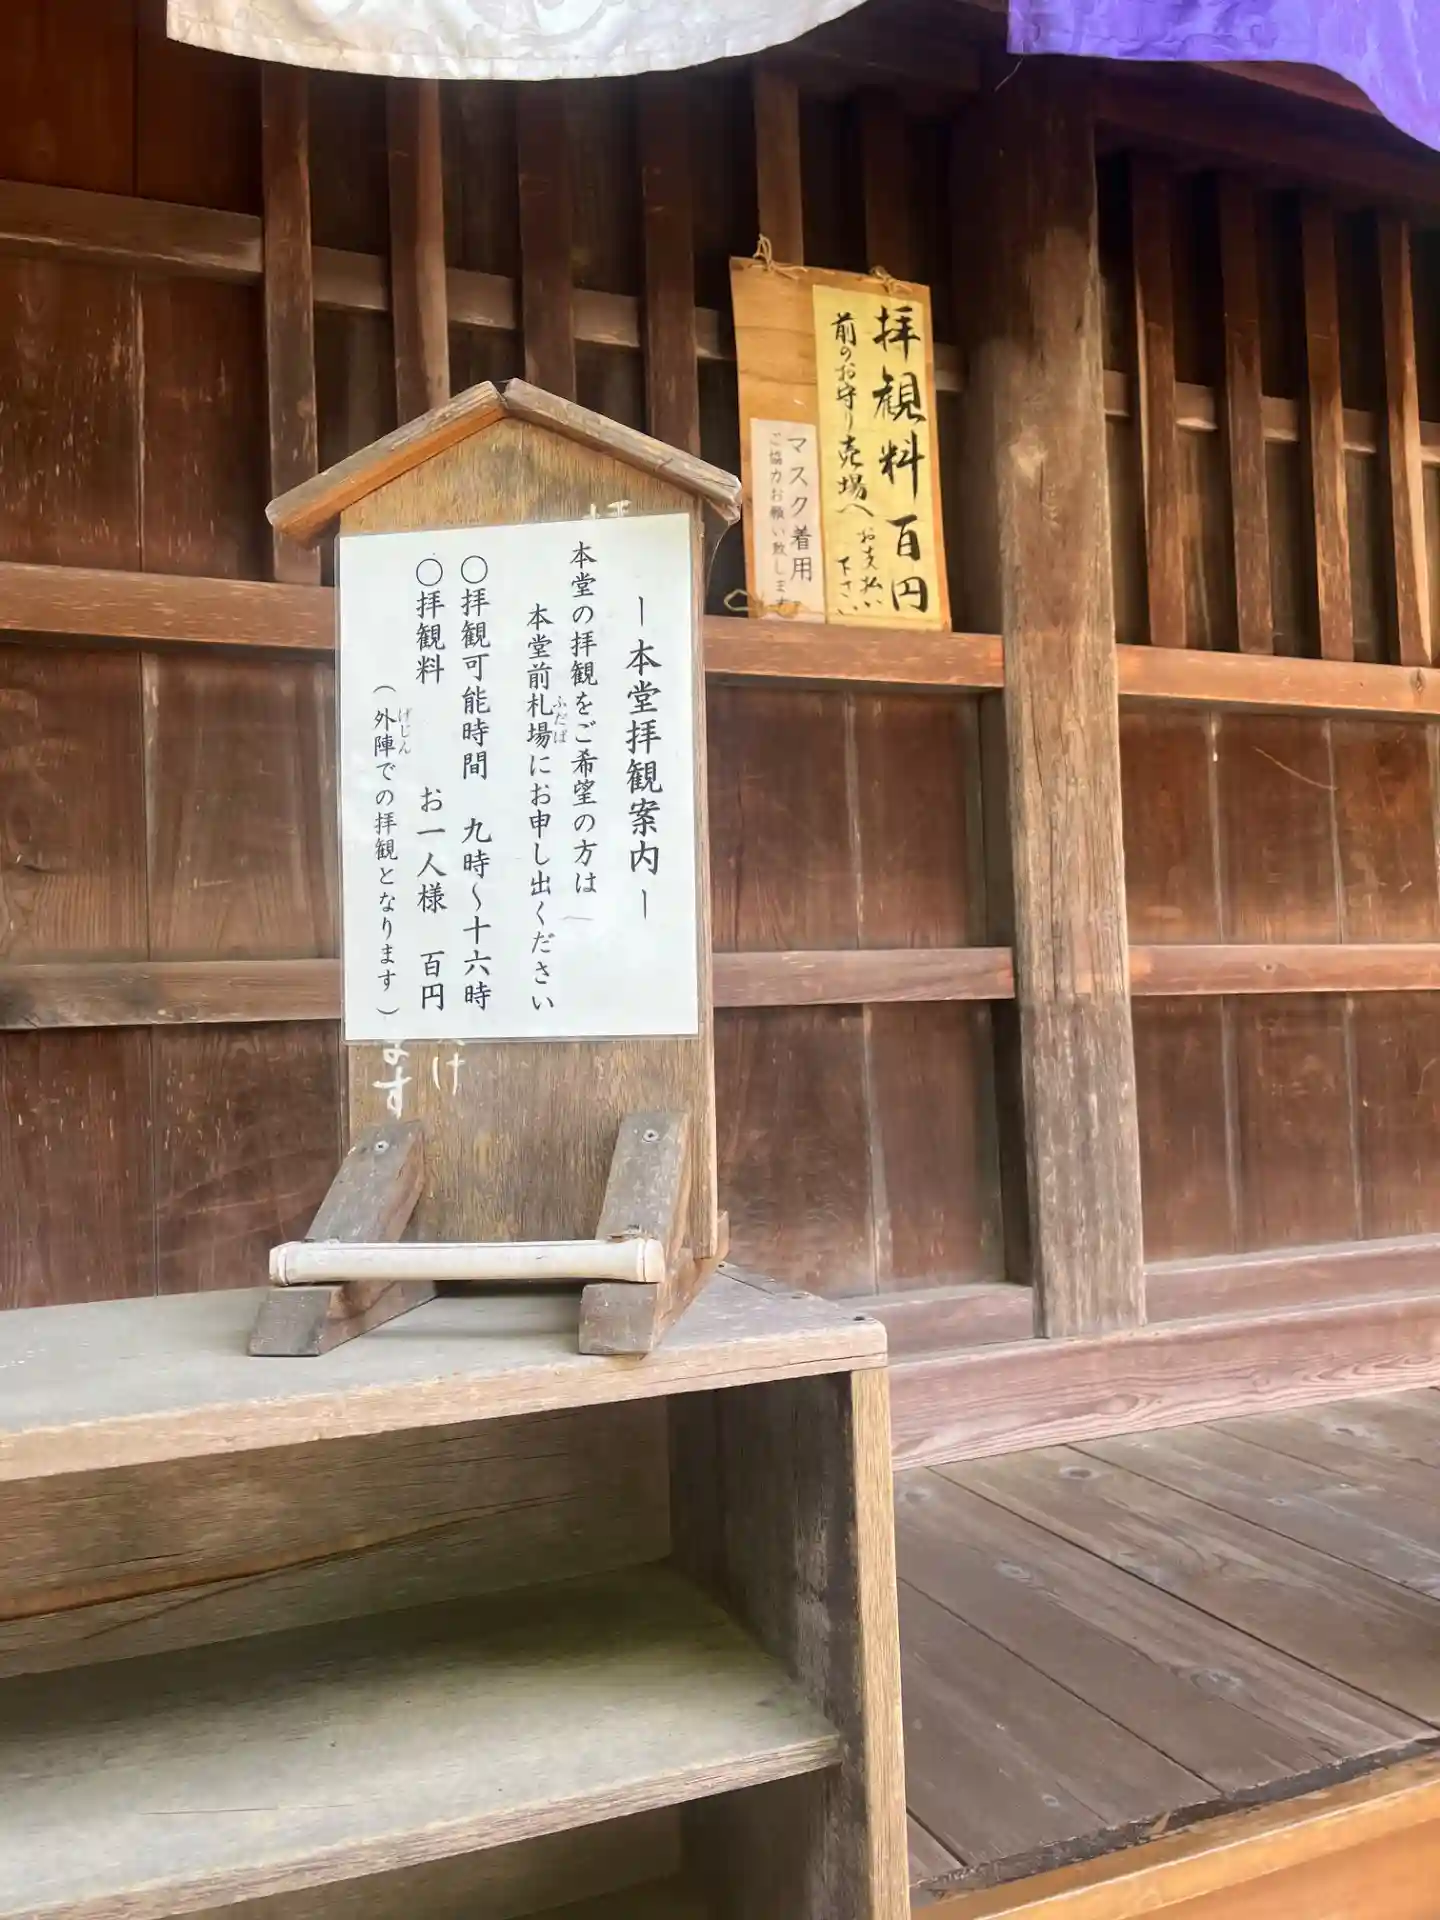 拝観料 百円
前のお守り売場へ お支払い下さい
マスク着用
ご協力お願い致します
ー本堂拝観案内ー
本堂の拝観をご希望の方は
本堂前札場にお申し出ください
ふだば
〇拝観可能時間 九時~十六時
〇拝観料 お一人様 百円
(外陣での拝観となります)
げじん
け
ます